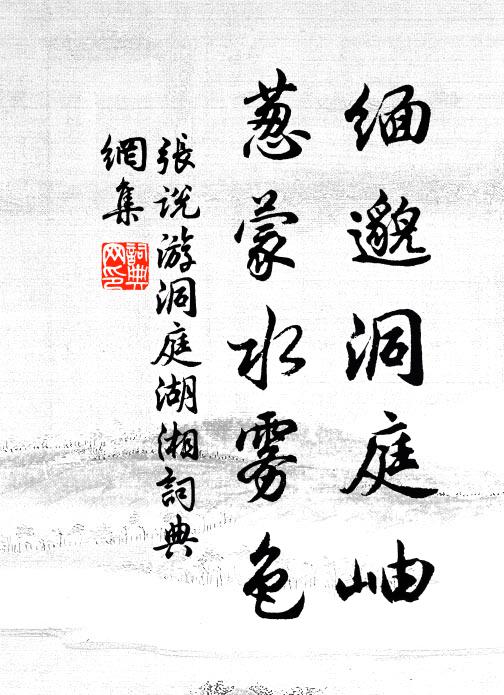 緬邈洞庭岫
蔥蒙水霧色
張說游洞庭湖湘詞典
網集
詞典
网印